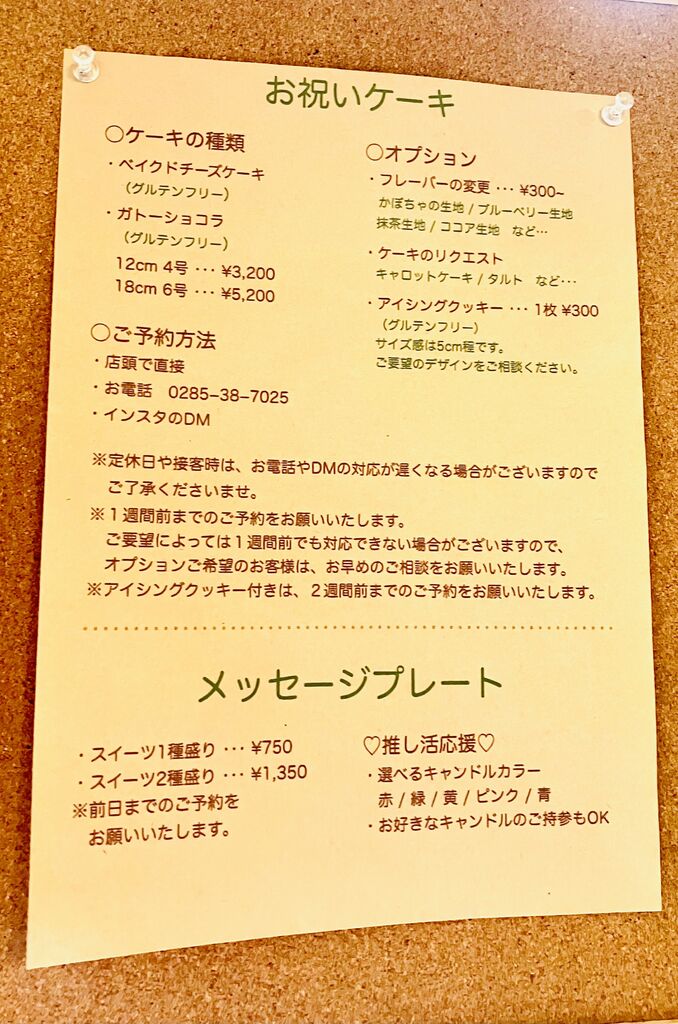 お祝いケーキ
○ケーキの種類
・ベイクドチーズケーキ
（グルテンフリー）
・ガトーショコラ
（グルテンフリー）
12cm 4号 ･･･ ¥3,200
18cm 6号 ･･･ ¥5,200
○ご予約方法
・店頭で直接
・お電話　0285−38−7025
・インスタのDM
○オプション
・フレーバーの変更 ･･･ ¥300~
かぼちゃの生地 / ブルーベリー生地
抹茶生地 / ココア生地　など…
・ケーキのリクエスト
キャロットケーキ / タルト　など･･･
・アイシングクッキー ･･･ 1枚 ¥300
（グルテンフリー）
サイズ感は5cm程です。
ご要望のデザインをご相談ください。
※定休日や接客時は、お電話やDMの対応が遅くなる場合がございますので
ご了承くださいませ。
※１週間前までのご予約をお願いいたします。
ご要望によっては１週間前でも対応できない場合がございますので、
オプションご希望のお客様は、お早めのご相談をお願いいたします。
※アイシングクッキー付きは、２週間前までのご予約をお願いいたします。
メッセージプレート
・スイーツ1種盛り ･･･ ¥750
・スイーツ2種盛り ･･･ ¥1,350
※前日までのご予約を
お願いいたします。
♡推し活応援♡
・選べるキャンドルカラー
赤 / 緑 / 黄 / ピンク / 青
・お好きなキャンドルのご持参もOK